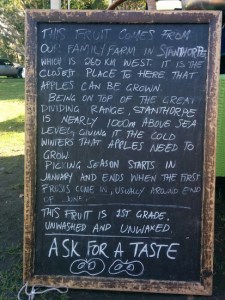 THIS FRUIT COMES FROM
OUR FAMILY FARM IN STANTHORPE
WHICH IS 260 KM WEST. IT IS THE
CLOSEST PLACE TO HERE THAT
APPLES CAN BE GROWN.
BEING ON TOP OF THE GREAT
DIVIDING RANGE, STANTHORPE
IS NEARLY 1000m ABOVE SEA
LEVEL, GIVING IT THE COLD
WINTERS THAT APPLES NEED TO
GROW.
PICKING SEASON STARTS IN
JANUARY AND ENDS WHEN THE FIRST
FROSTS COME IN, USUALLY AROUND END
OF JUNE.
THIS FRUIT IS 1ST GRADE,
UNWASHED AND UNWAXED.
ASK FOR A TASTE